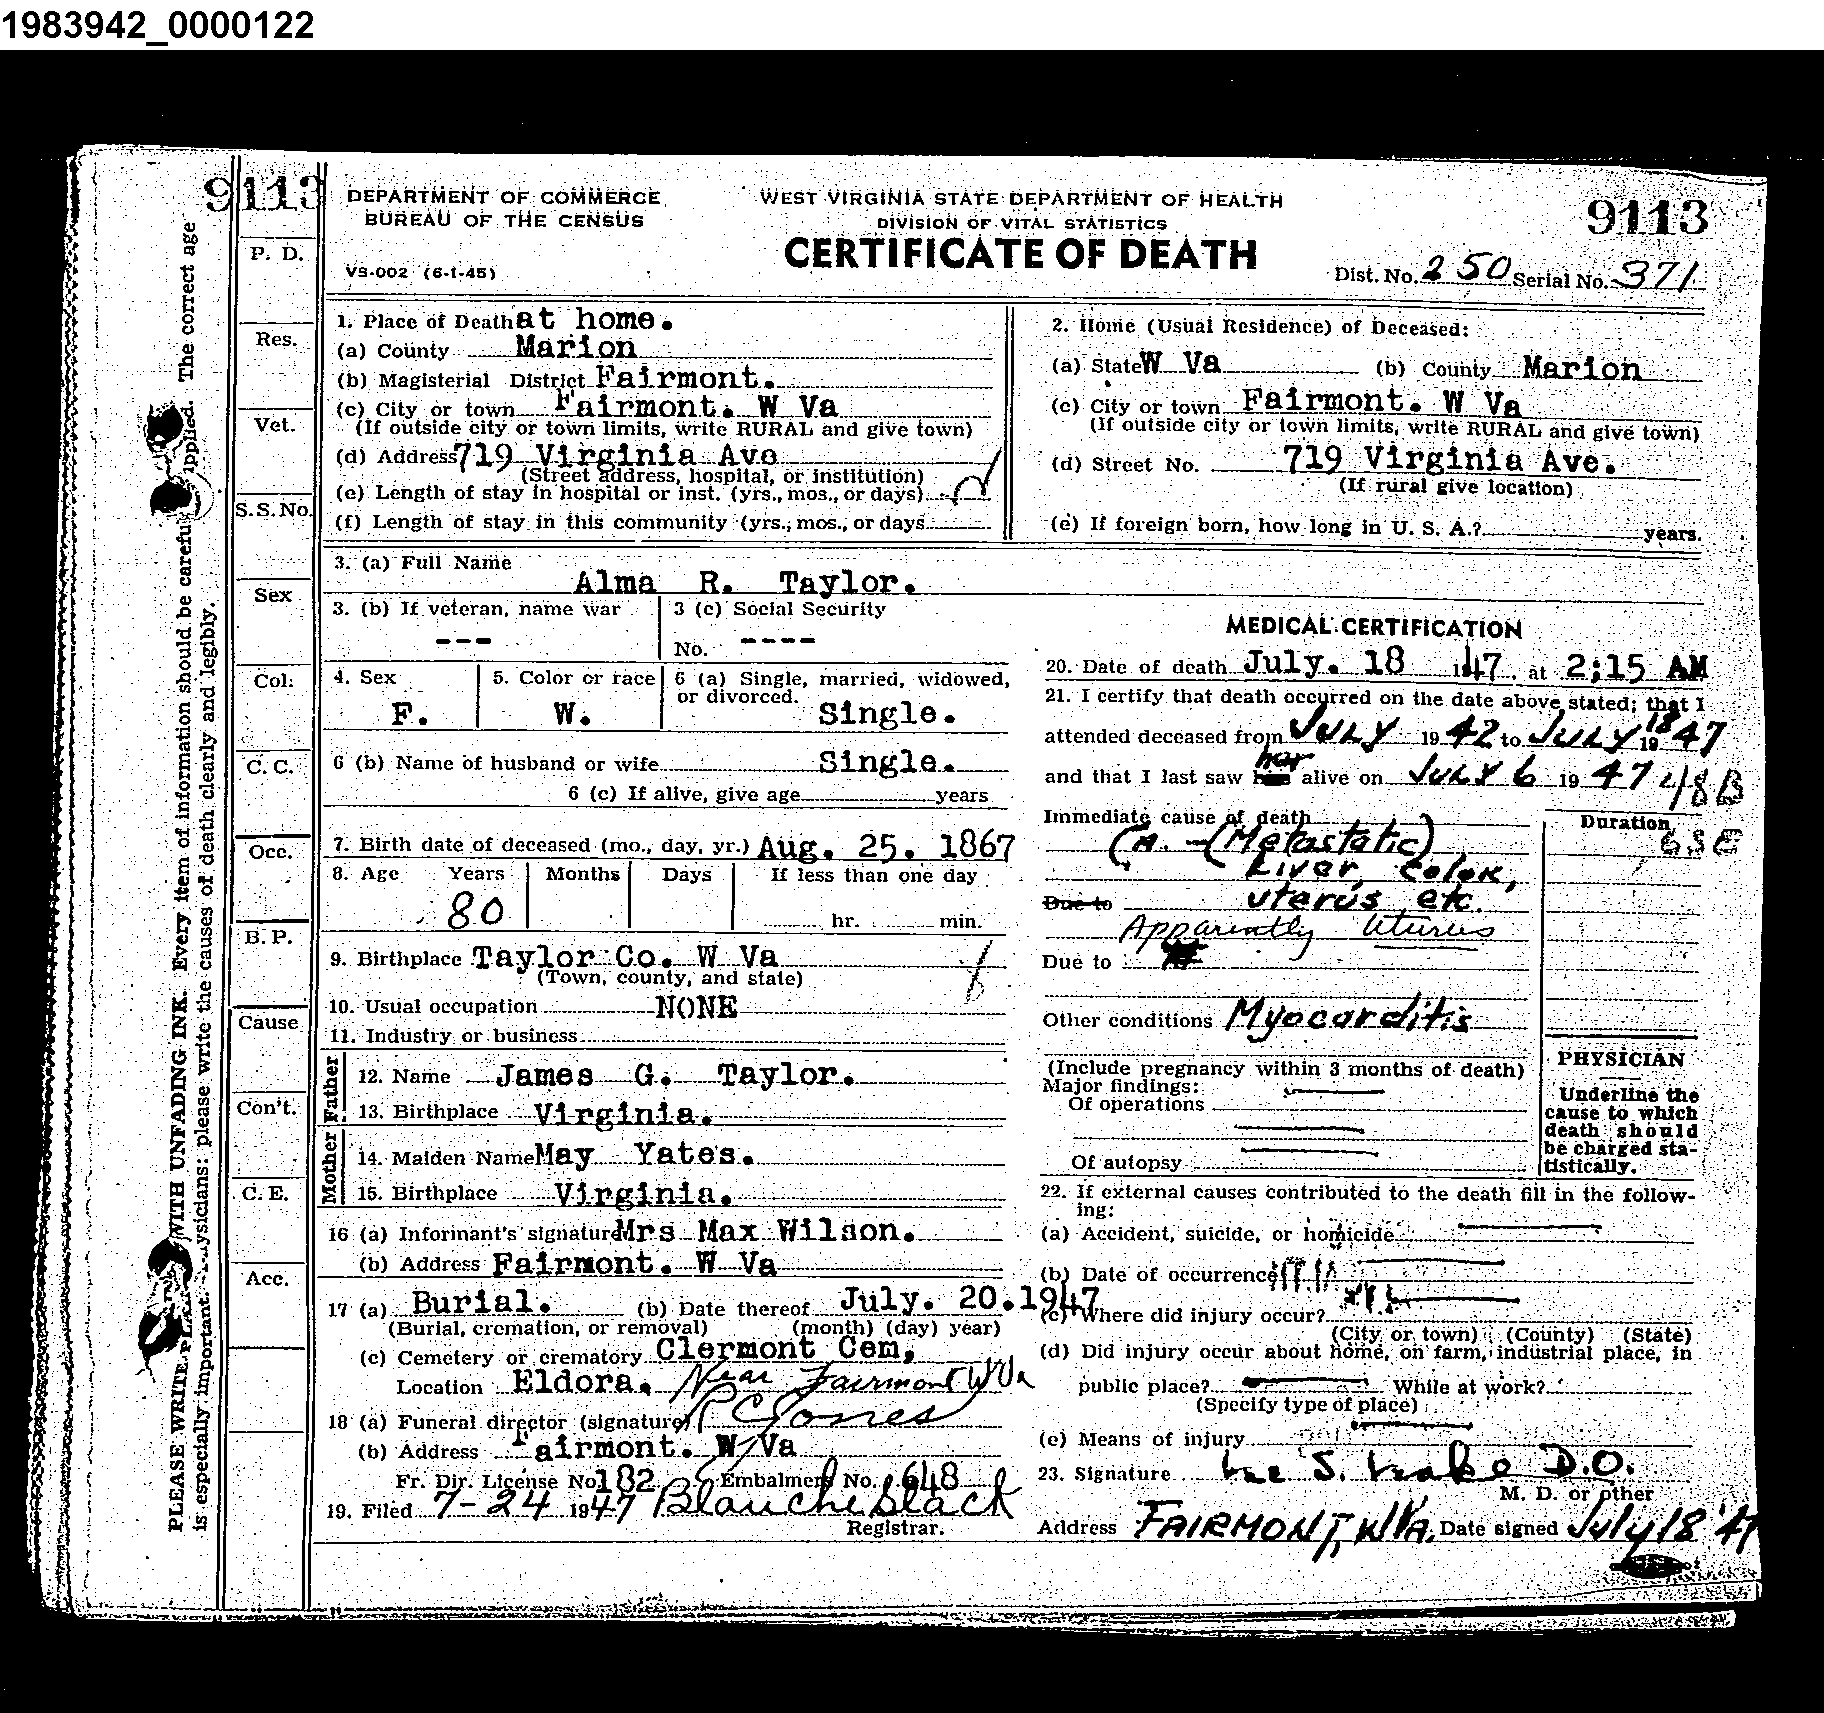 1983942_0000122
9113
DEPARTMENT OF COMMERCE
BUREAU OF THE CENSUS
VS-002 (6-1-45)
WEST VIRGINIA STATE DEPARTMENT OF HEALTH
DIVISION OF VITAL STATISTICS
CERTIFICATE OF DEATH
9113
Dist. No. 250 Serial No. 371
PLEASE WRITE PLA WITH UNFADING INK. Every item of information should be carefu pplied. The correct age
is especially important. ysicians: please write the causes of death clearly and legibly.
P. D.
Res.
Vet.
S.S.No.
Sex
Col.
C. C.
Occ.
B. P.
Cause
Con't.
C. E.
Acc.
1. Place of Death at home.
(a) County Marion
(b) Magisterial District Fairmont.
(c) City or town Fairmont. W Va
(If outside city or town limits, write RURAL and give town)
(d) Address 719 Virginia Ave
(Street address, hospital, or institution)
(e) Length of stay in hospital or inst. (yrs., mos., or days)
(f) Length of stay in this community (yrs., mos., or days
2. Home (Usual Residence) of Deceased:
(a) State W Va (b) County Marion
(c) City or town Fairmont. W Va
(If outside city or town limits, write RURAL and give town)
(d) Street No. 719 Virginia Ave.
(If rural give location)
(e) If foreign born, how long in U. S. A.? years.
3. (a) Full Name
Alma R. Taylor.
3. (b) If veteran, name war
---
3 (c) Social Security
No. ----
4. Sex
F.
5. Color or race
W.
6 (a) Single, married, widowed,
or divorced.
Single.
6 (b) Name of husband or wife Single.
6 (c) If alive, give age years
7. Birth date of deceased (mo., day, yr.) Aug. 25. 1867
8. Age Years Months Days If less than one day
80 hr. min.
9. Birthplace Taylor Co. W Va
(Town, county, and state)
10. Usual occupation NONE
11. Industry or business
Father
12. Name James G. Taylor.
13. Birthplace Virginia.
Mother
14. Maiden Name May Yates.
15. Birthplace Virginia.
16 (a) Informant's signature Mrs Max Wilson.
(b) Address Fairmont. W Va
17 (a) Burial. (b) Date thereof July. 20.1947
(Burial, cremation, or removal) (month) (day) year)
(c) Cemetery or crematory Clermont Cem,
Location Eldora. Near Fairmont W Va
18 (a) Funeral director (signature) R C Jones
(b) Address Fairmont. W Va
Fr. Dir. License No. 182 Embalmers No. 648
19. Filed 7-24 1947 Blanche Slack
Registrar.
MEDICAL CERTIFICATION
20. Date of death July. 18 147. at 2;15 AM
21. I certify that death occurred on the date above stated; that I
attended deceased from JULY 1942 to JULY 18 1947
and that I last saw her alive on JULY 6 1947 48B
Immediate cause of death
Ca. - (Metastatic)
Liver, Colon,
Due to uterus etc.
Apparently Uturus
Due to
Other conditions Myocarditis
(Include pregnancy within 3 months of death)
Major findings:
Of operations
Of autopsy
Duration
PHYSICIAN
Underline the
cause to which
death should
be charged sta-
tistically.
22. If external causes contributed to the death fill in the follow-
ing:
(a) Accident, suicide, or homicide
(b) Date of occurrence
(c) Where did injury occur?
(City or town) (County) (State)
(d) Did injury occur about home, on farm, industrial place, in
public place? While at work?
(Specify type of place)
(e) Means of injury
23. Signature S. D.O.
M. D. or other
Address FAIRMONT, W VA. Date signed July 18 '47